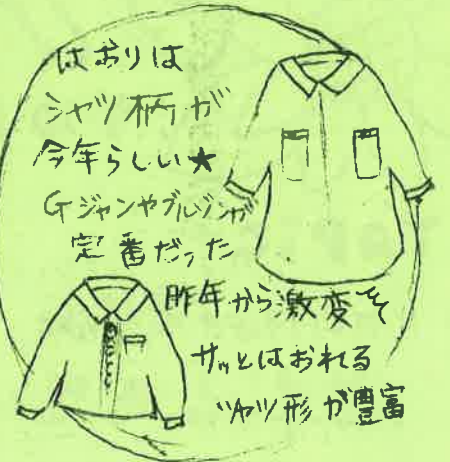 はおりは
シャツ柄が
今年らしい★
Gジャンやブルゾンが
定番だった
昨年から激変
サッとはおれる
シャツ形が豊富